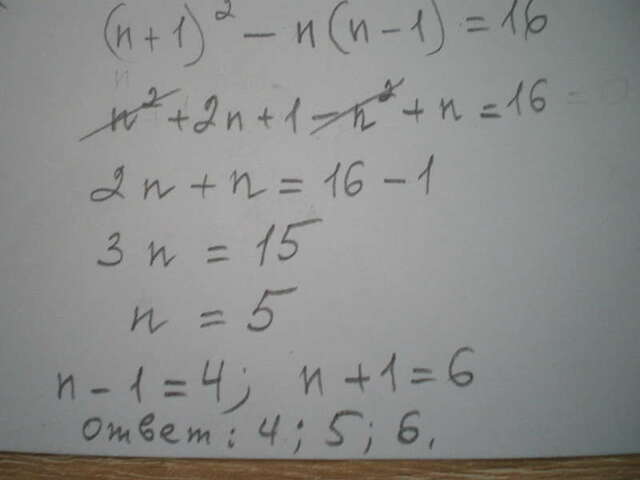 (n+1)² - n(n-1) = 16
n² + 2n + 1 - n² + n = 16
2n + n = 16 - 1
3n = 15
n = 5
n - 1 = 4; n + 1 = 6
Ответ: 4; 5; 6.